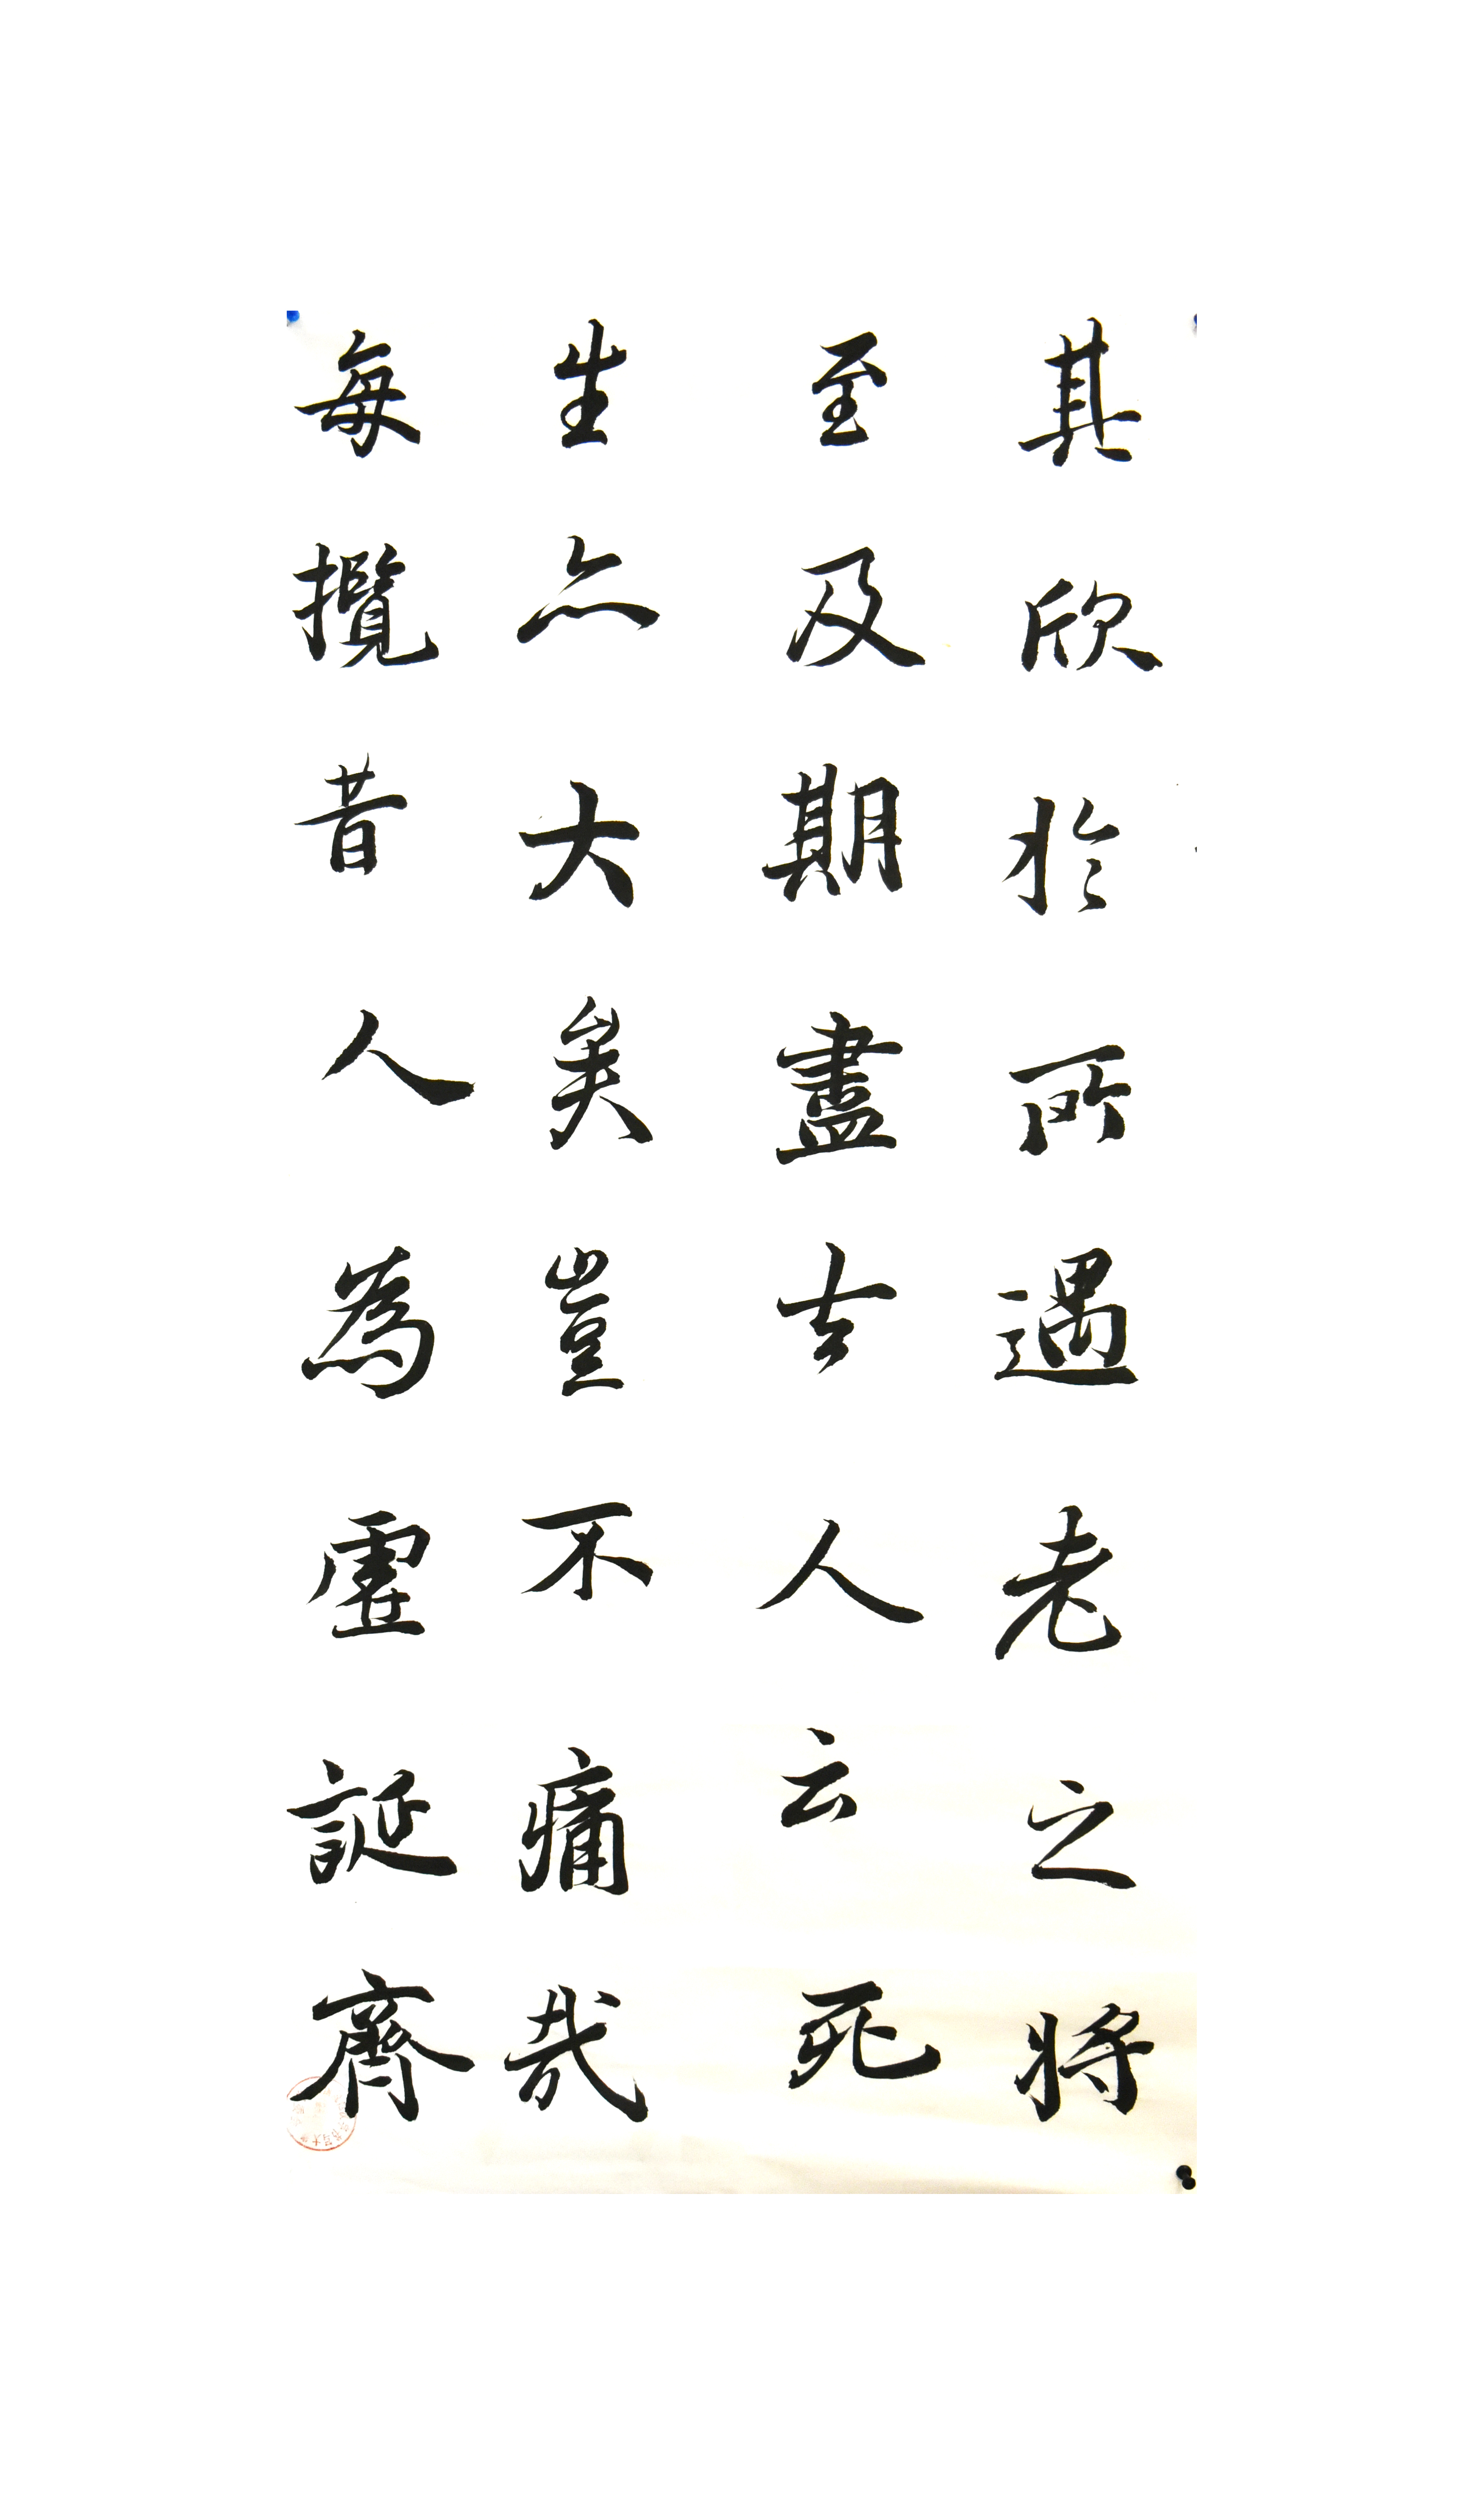 其欣於所遇老之將
至及期盡古人云死
生亦大矣豈不痛哉
每攬昔人為虛誕齊